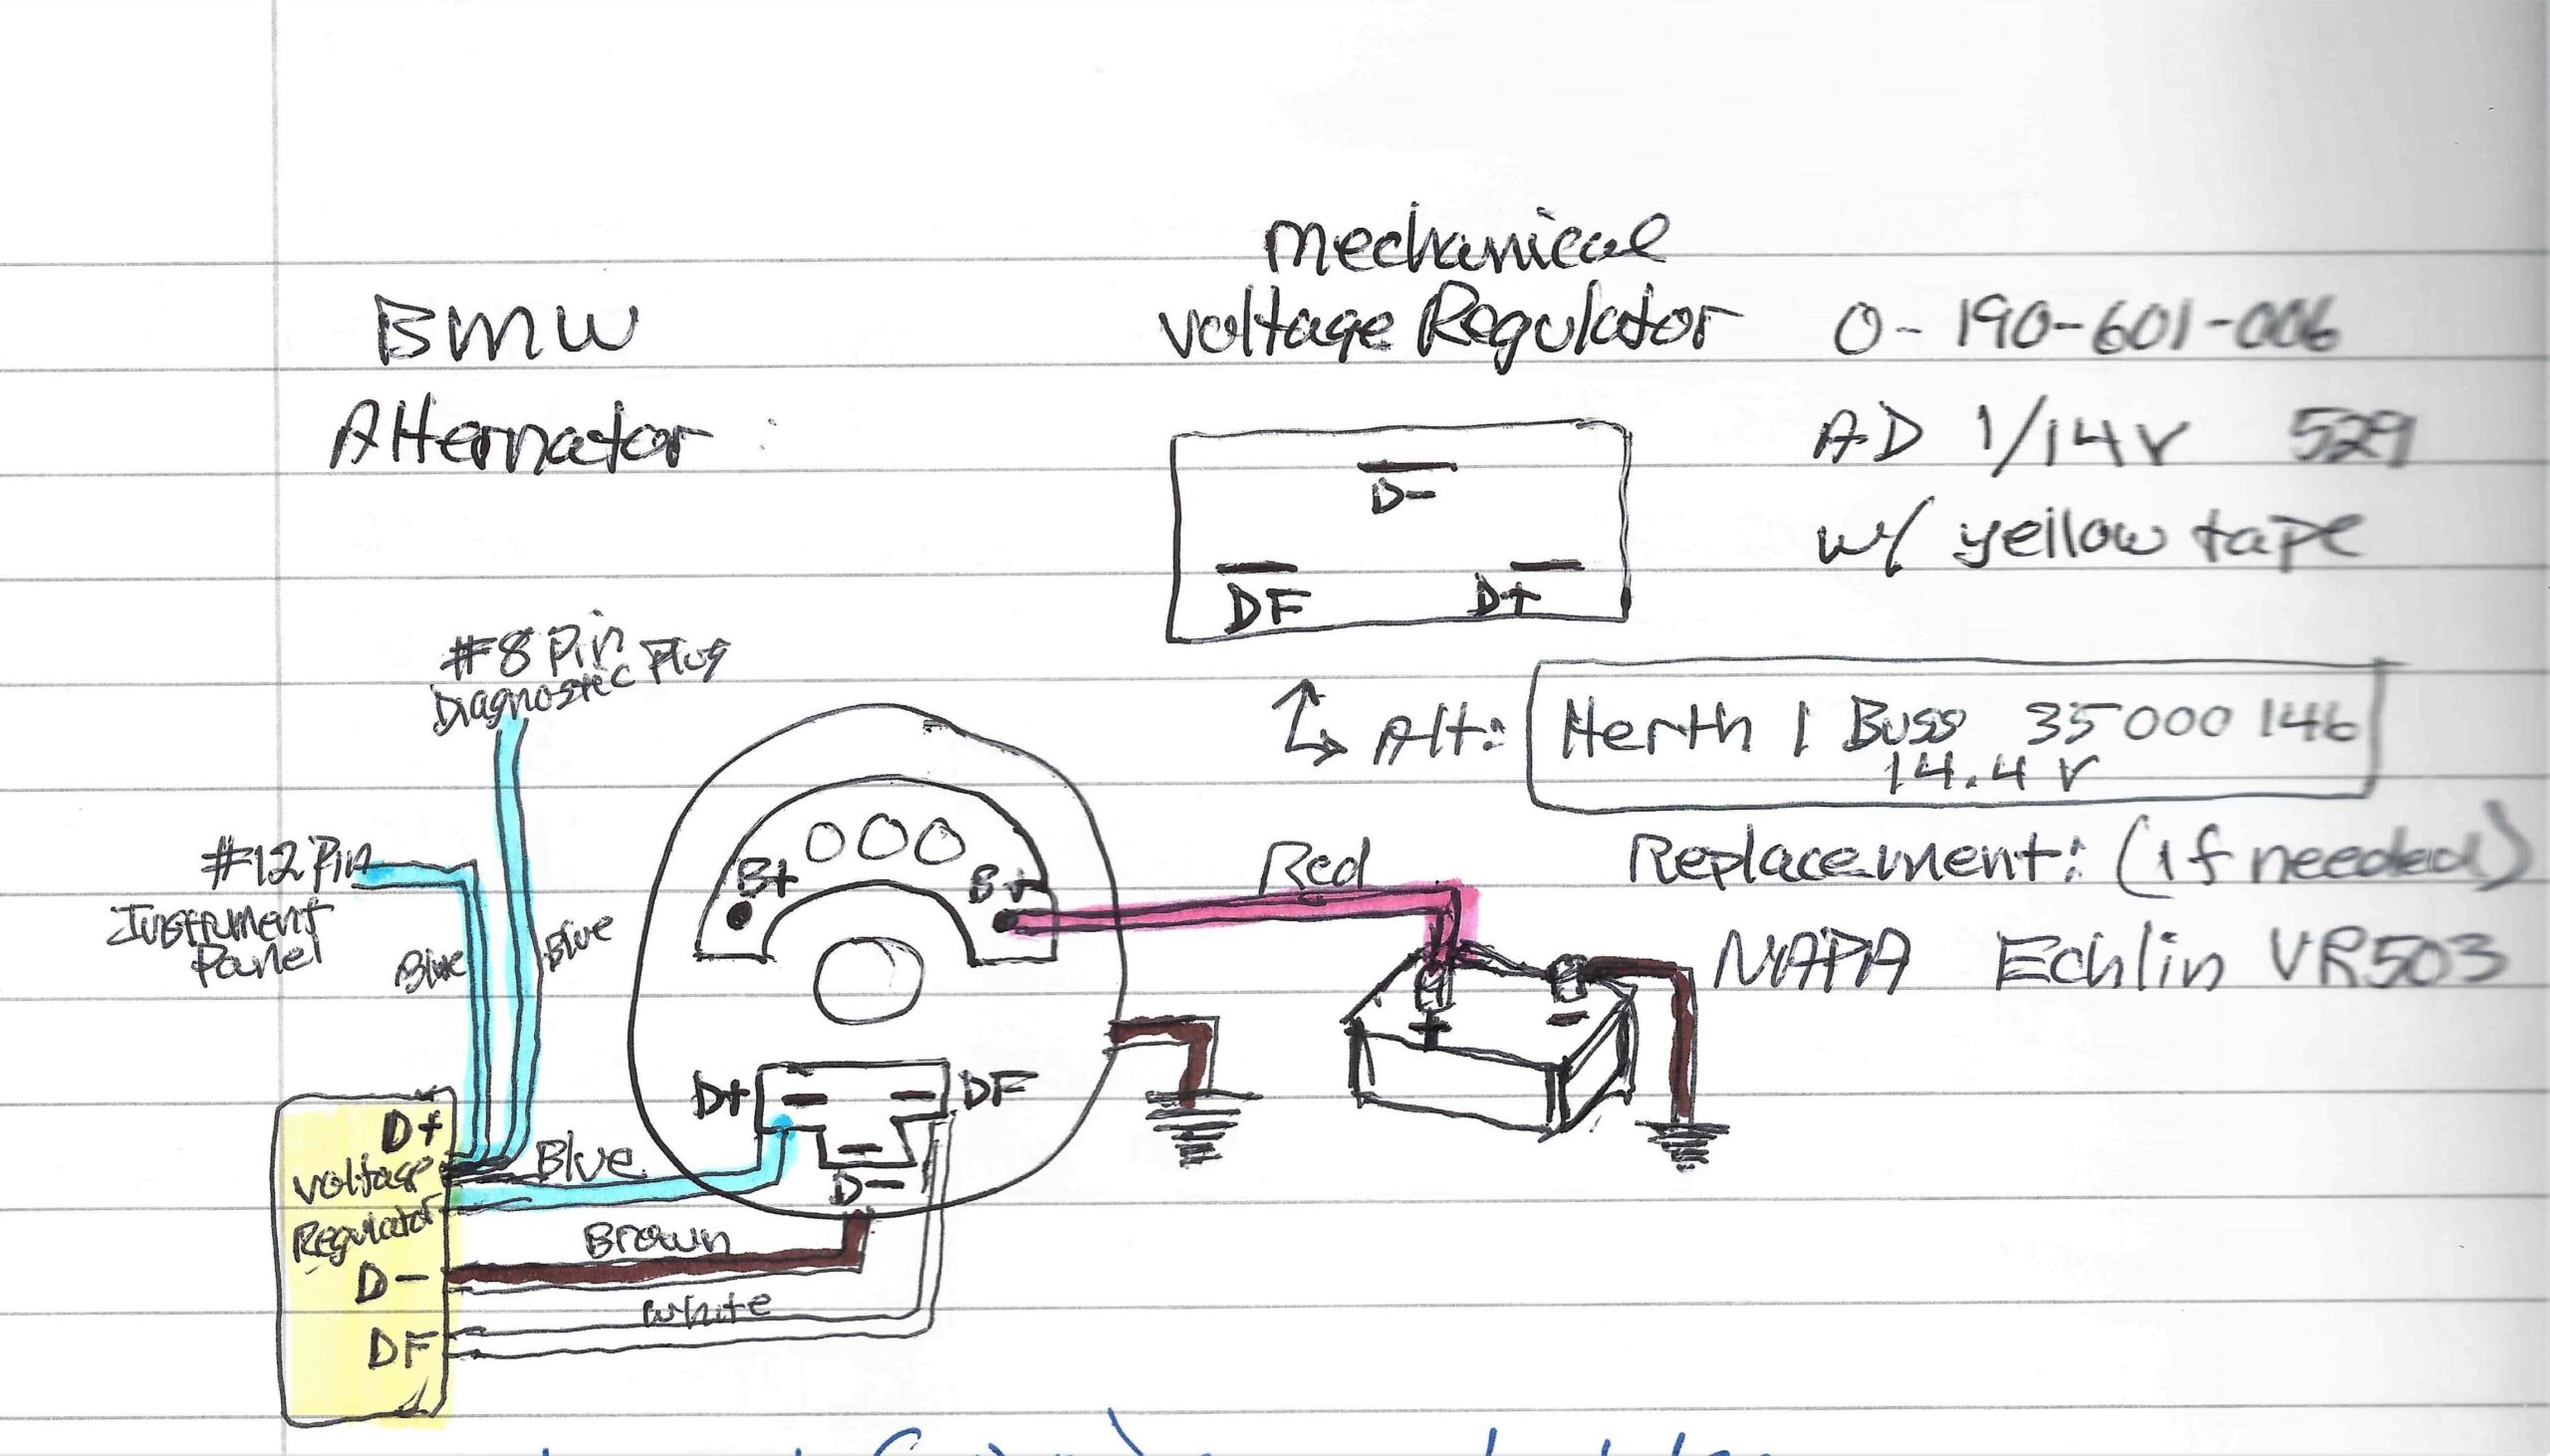 BMW
Alternator
mechanical
voltage Regulator
0-190-601-006
AD 1/14V 529
w/ yellow tape
D-
DF D+
Alt: Herth 1 Buss 35000 146
14.4 V
Replacement: (if needed)
NAPA Echlin VR503
#8 Pin
Diagnostic Plug
#12 Pin
Instrument
Panel
Blue
Blue
B+ B+
Red
+ -
D+ DF
D-
D+
voltage
Regulator
D-
DF
Blue
Brown
White